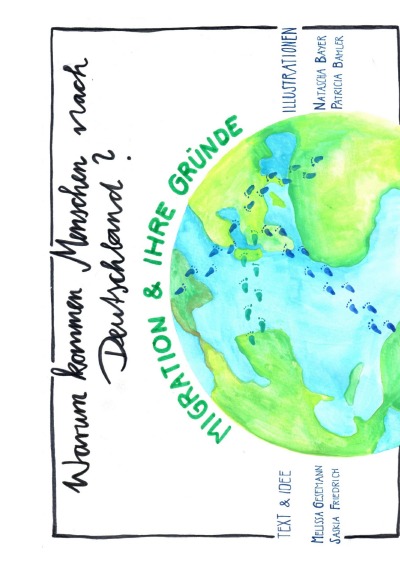 Warum kommen Menschen nach
Deutschland?
MIGRATION & IHRE GRÜNDE
TEXT & IDEE
MELISSA GESEMANN
SASKIA FRIEDRICH
ILLUSTRATIONEN
NATASCHA BAYER
PATRICIA BAMLER